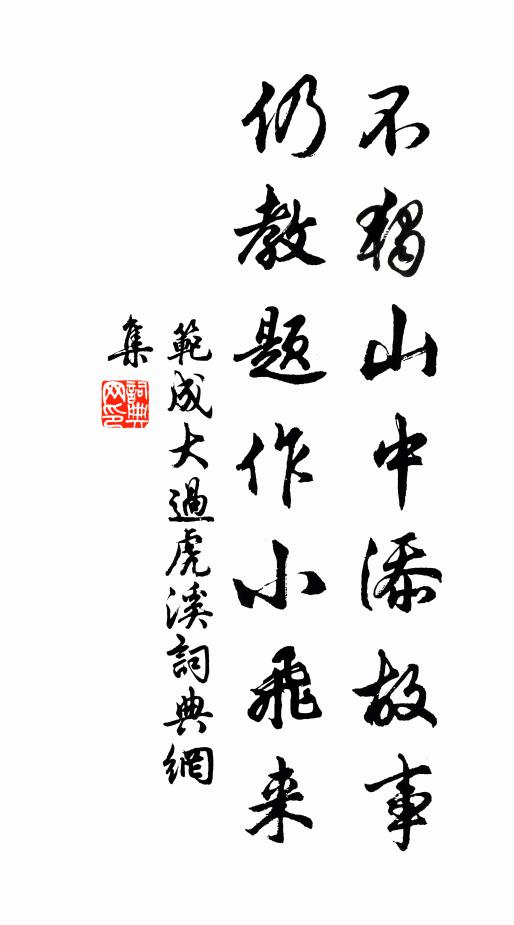 不獨山中添故事
仍教題作小飛来
範成大過虎溪詞典網
集
詞典
网印